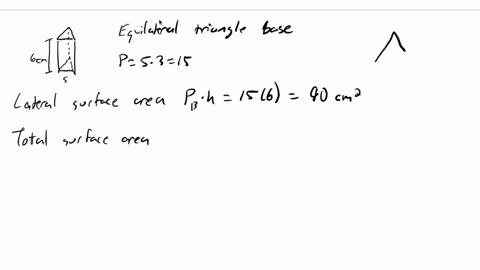 Equilateral triangle base
6cm
P = 5·3 = 15
5
Lateral surface area P_B·h = 15(6) = 90 cm²
Total surface area